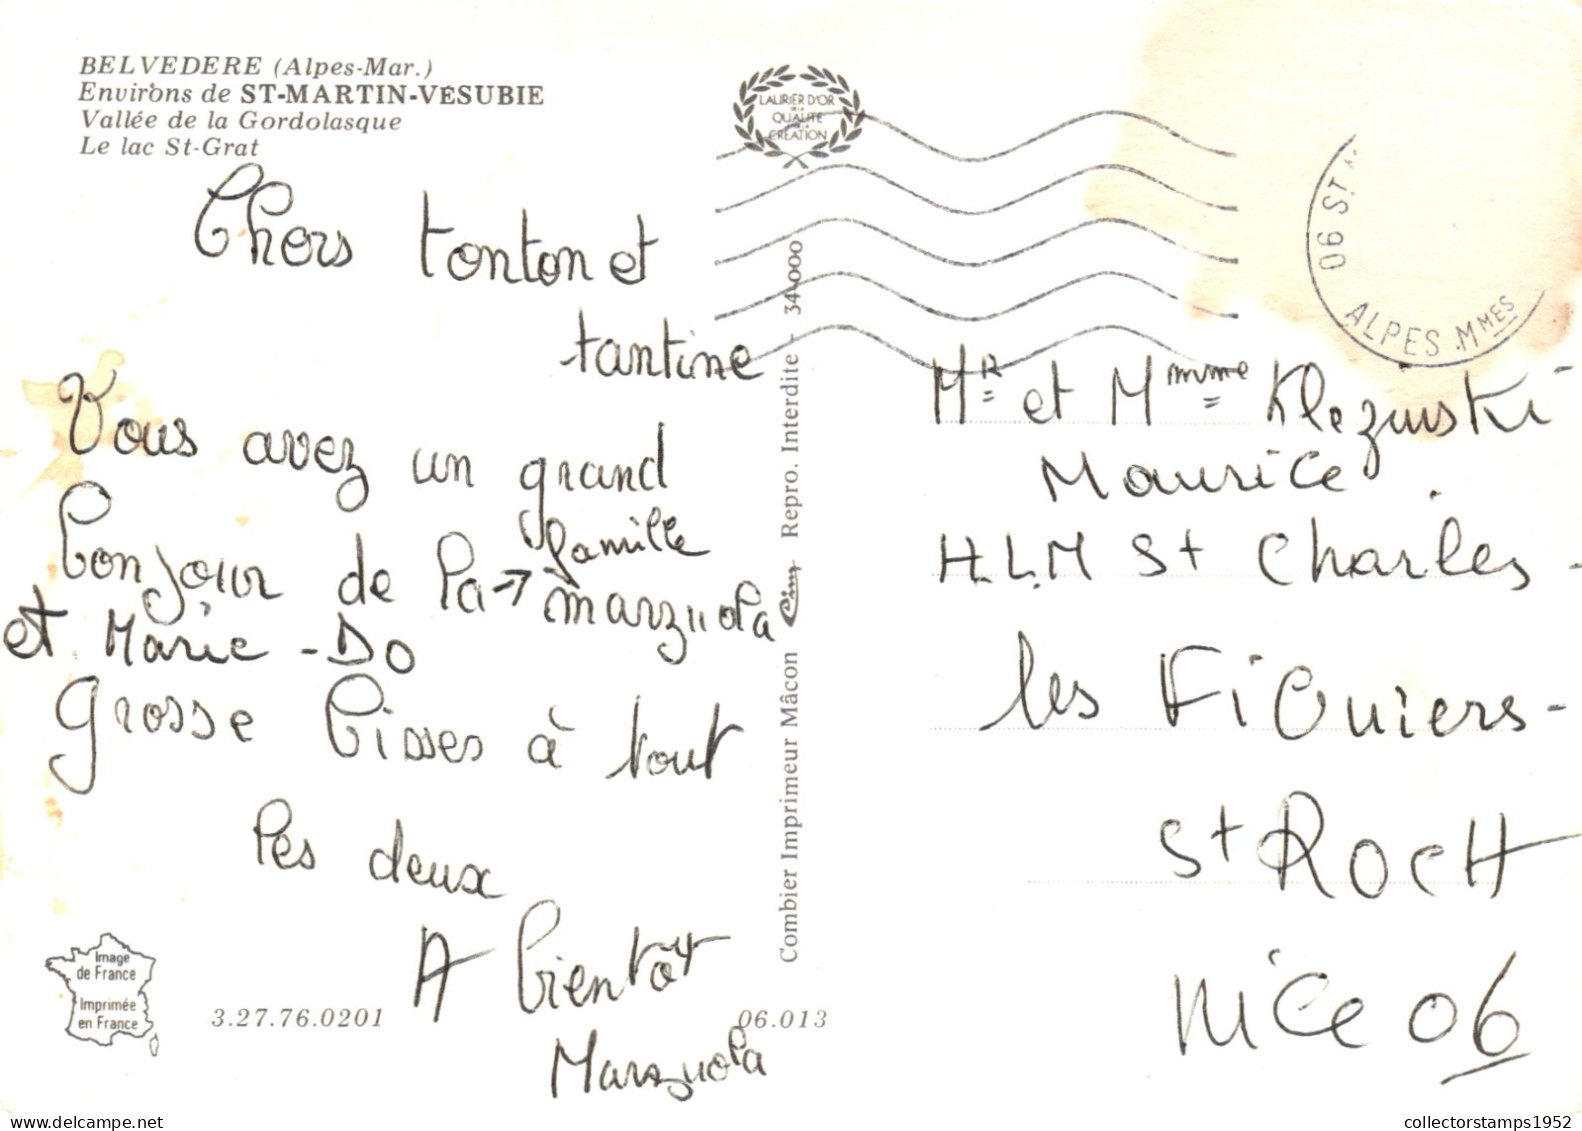 BELVEDERE (Alpes-Mar.)
Environs de ST-MARTIN-VESUBIE
Vallée de la Gordolasque
Le lac St-Grat
Chers tonton et
tantine
Vous avez un grand
bonjour de la → famille
marzuola
et Marie-Do
grosse bisses à tout
les deux
A bientôt
Marzuola
Image
de France
Imprimée
en France
3.27.76.0201
06.013
LAURIER D'OR
DE LA
QUALITE
CREATION
Combier Imprimeur Mâcon Cim Repro. Interdite - 34-000
06 ST
ALPES MMES
MR et Mmme Klezinski
Maurice.
H.L.M St Charles-
les Figuiers-
St ROCH
NICE 06
collectorstamps1952